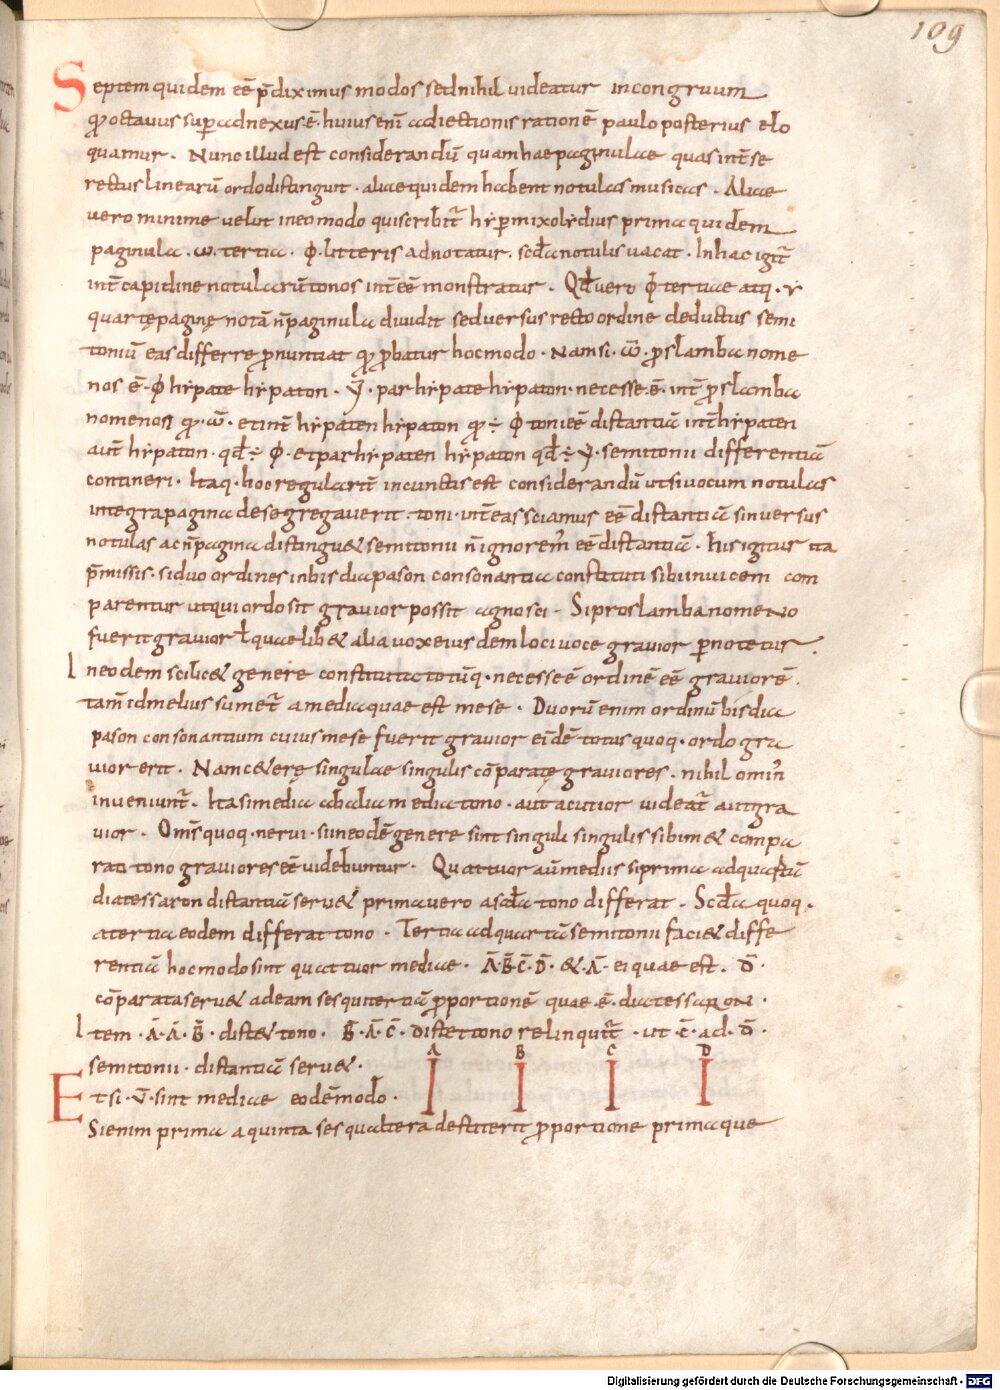 109
Septem quidem eē p̄diximus modos sed nihil uideatur incongruum
qđ octauus sup adnexus ē. huius enī adiectionis rationē paulo posterius elo
quamur. Nunc illud est considerandū quam hae paginulae quas int̄ se
rectus linearū ordo distinguit. aliae quidem habent notulas musicas. Aliae
uero minime uelut in eo modo qui scribit᷑ hẏpermixolẏdius prima quidem
paginula .ω. tertia. Φ. litteris adnotatur. scđa notulis uacat. In hac igit᷑
int̄capidine notularū tonos int̄eē monstratur. Qđ uero Φ tertiae atq. Y
quartę paginę notā n̄ paginula diuidit sed uersus recto ordine deductus semi
toniū eas differre p̄nuntiat qđ p̄batur hoc modo. Nam si. ω̄. p̄slambanome
nos ē. Φ hẏpate hẏpaton. Ȳ. parhẏpate hẏpaton. necesse. ē. int̄ p̄slamba
nomenon qđ. ω̄. et int̄ hẏpaten hẏpaton qđ ÷ Φ toni eē distantiā int̄ hẏpaten
aut̄ hẏpaton. qđ ÷ Φ. et parhẏpaten hẏpaton qđ ÷ Ȳ. semitonii differentiā
contineri. Itaq. hoc regularit̄ in cunctis est considerandū ut si uocum notulas
integra pagina desegregauerit toni. int̄ eas sciamus eē distantiā sin uersus
notulas ac n̄ pagina distinguet semitonii n̄ ignorem᷑ eē distantiā. His igitur ita
p̄missis. si duo ordines in bis diapason consonantia constituti sibi inuicem com
parentur ut qui ordo sit grauior possit agnosci. Si proslambanomeno
fuerit grauior ł quaelibet alia uox eiusdem loci uoce grauior pernotetur.
In eodem scilicet genere constituta totūq. necesse ē ordinē eē grauiorē.
tam̄ id melius sumet᷑ a media quae est mese. Duorū enim ordinū bis dia
pason consonantium cuius mese fuerit grauior eidē totus quoq. ordo gra
uior erit. Nam cetere singulae singulis cōparatę grauiores. nihil omin᷑
inueniunt᷑. Ita si media ab alia media tono. aut acutior uideat᷑ aut gra
uior. Oms̄ quoq. nerui. si in eodē genere sint singuli singulis sibimet compa
rati tono grauiores eē uidebuntur. Quattuor aū mediis si prima ad quartā
diatessaron distantiā seruet prima uero a scđa tono differat. Scđa quoq.
a tertia eodem differat tono. Tertia ad quartā semitonii faciet diffe
rentiā hoc modo sint quattuor mediae. Ā. B̄. C̄. D̄. et. Ā. ei quae est. D̄.
cōparata seruet ad eam sesquitertiā p̄portionē quae. ē. diatessaron.
Item. Ā. Ā. B̄. distet tono. B̄. Ā. C̄. distet tono relinquit᷑. ut C̄. ad. D̄.
semitonii. distantiā seruet.
A B C D
Et si. V̄. sint mediae eodē modo.
Si enim prima a quinta sesqualtera destiterit p̄portione primaque
Digitalisierung gefördert durch die Deutsche Forschungsgemeinschaft - DFG